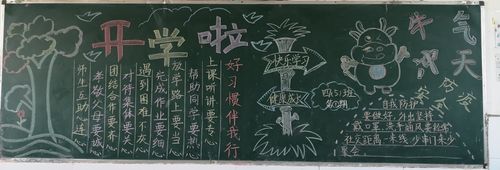 开学啦
好习惯伴我行
上课听讲要专心
帮助同学要热心
放学路上要当心
完成作业要细心
遇到困难不灰心
对待集体要关心
团结合作要齐心
孝敬父母要诚心
师生互助心连心
快乐学习
健康成长
牛气冲天
自我防护
要做好,外出坚持
戴口罩,洗手通风要经常
社交距离一米线 少串门来少
聚会